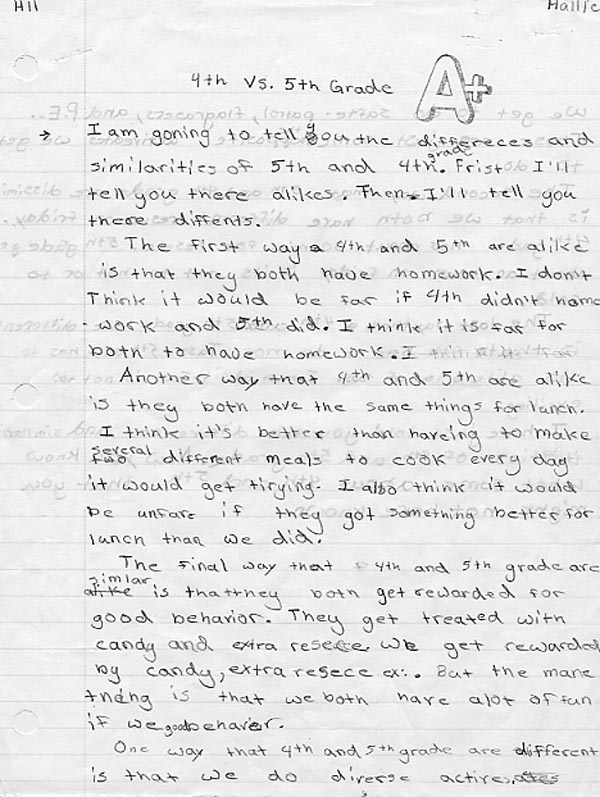 Hil
Hallie
4th Vs. 5th Grade
A+
→ I am goning to tell you the differeces and
similarities of 5th and 4th grade. Frist I'll
tell you there alikes. Then I'll tell you
there diffents.
The first way a 4th and 5th are alike
is that they both have homework. I don't
Think it would be far if 4th didn't home
work and 5th did. I think it is far for
both to have homework. I
Another way that 4th and 5th are alike
is they both have the same things for lunch.
I think it's better than haveing to make
several different meals to cook every day
it would get tirying. I also think it would
be unfare if they got something better for
lunch than we did.
The final way that 4th and 5th grade are
simlar is thatthey both get rewarded for
good behavior. They get treated with
candy and extra resece. We get rewarded
by candy, extra resece ex:. But the mane
thing is that we both have alot of fun
if we good behaver.
One way that 4th and 5th grade are different
is that we do diverse actires.